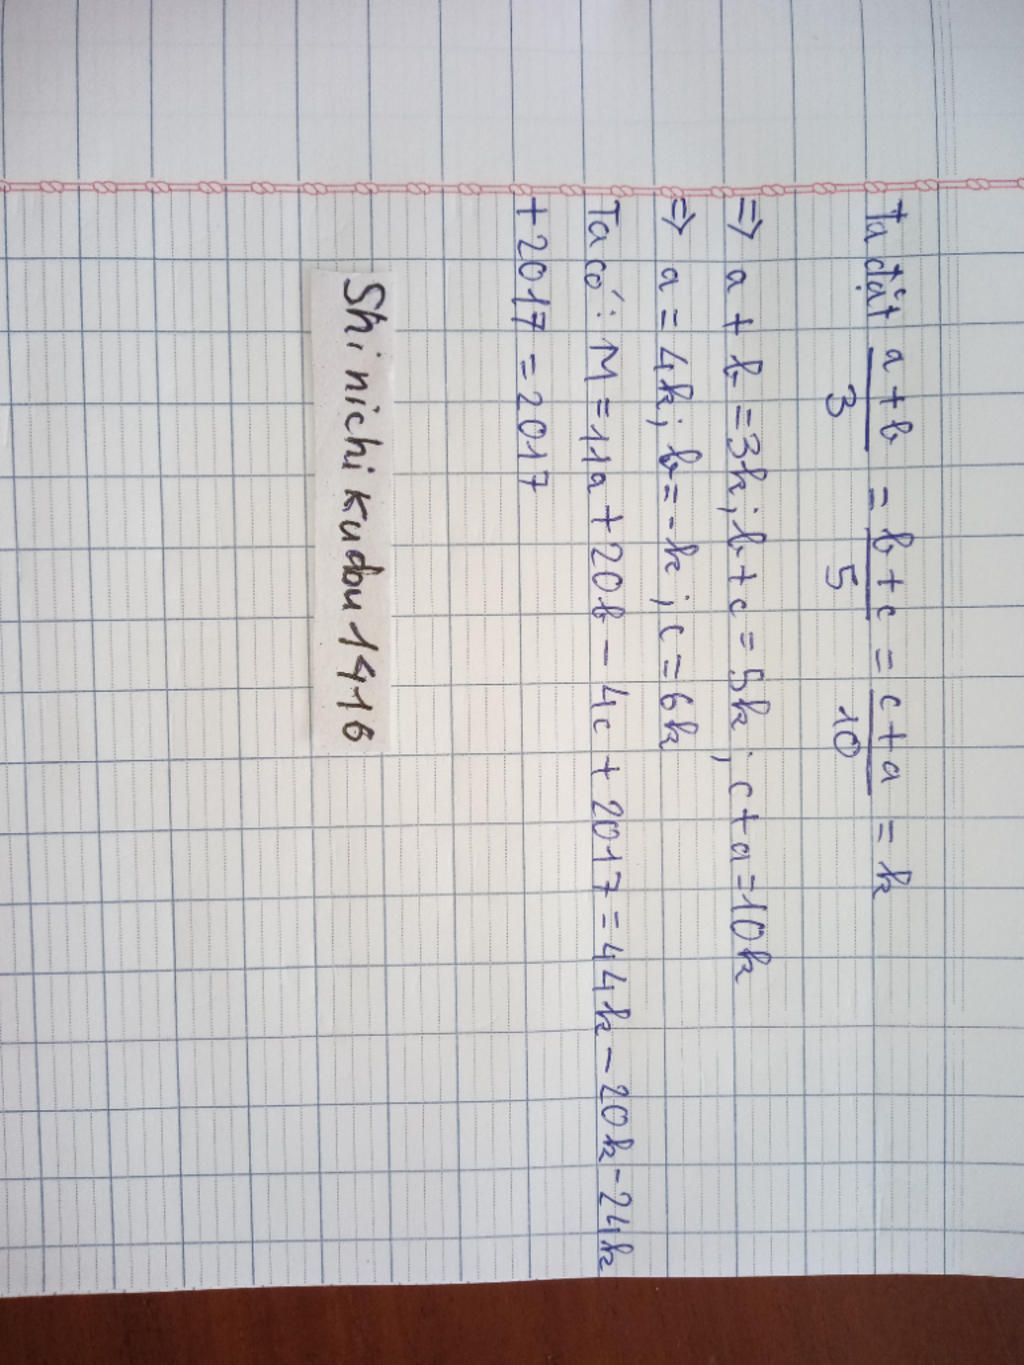 Ta đặt a+b/3 = b+c/5 = c+a/10 = k
=> a + b = 3k; b+c = 5k; c+a=10k
=> a = 4k; b=-k; c=6k
Ta có: M=11a+20b-4c+2017=44k-20k-24k
+2017=2017
Shinichi Kudou 1416